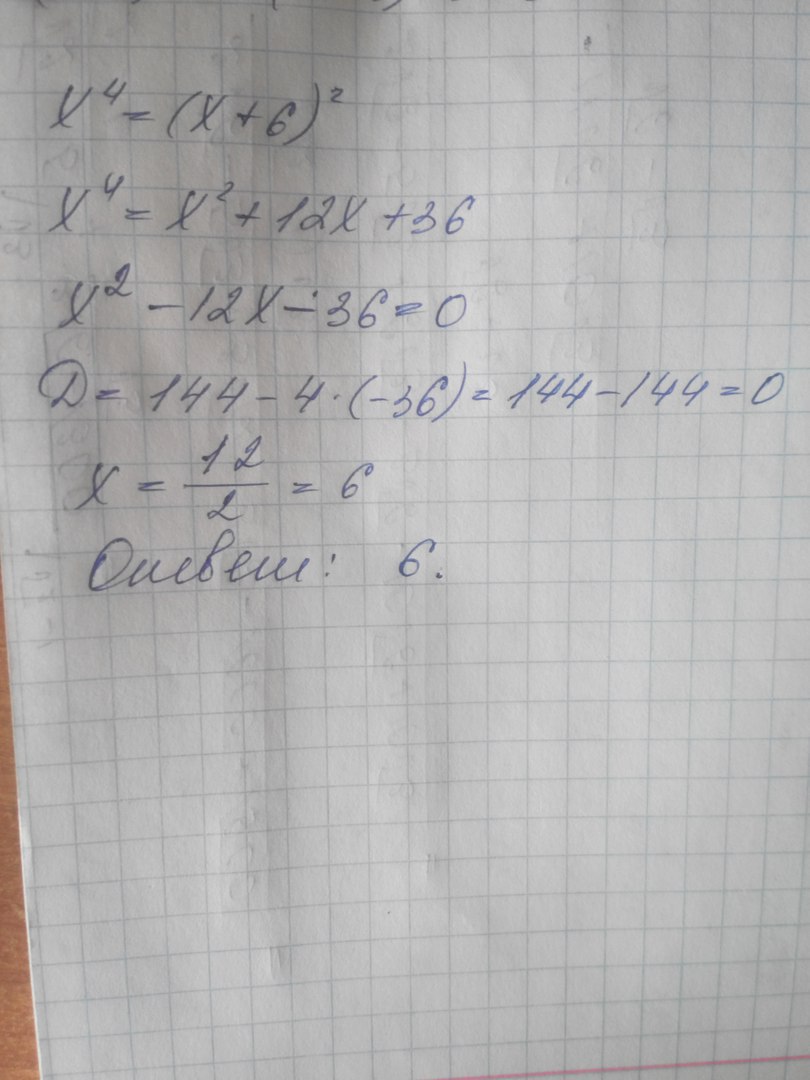 x⁴ = (x + 6)²
x⁴ = x² + 12x + 36
x² - 12x - 36 = 0
D = 144 - 4 · (-36) = 144 - 144 = 0
x = 12/2 = 6
Ответ: 6.